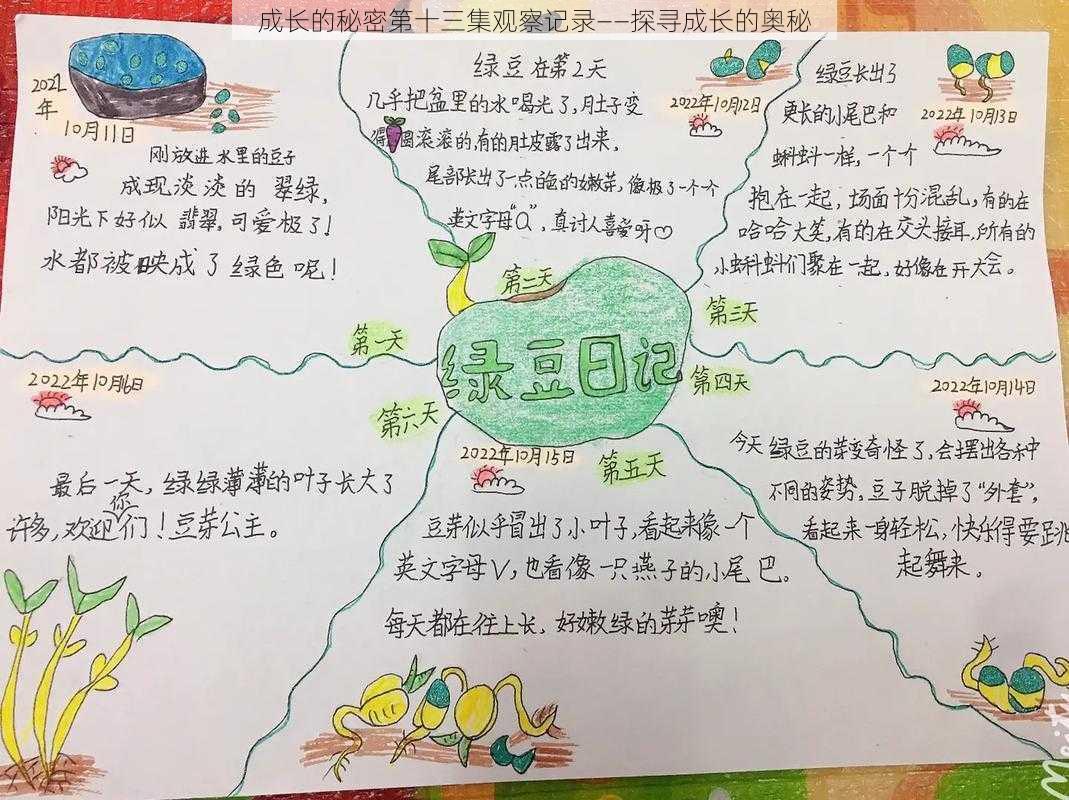 成长的秘密第十三集观察记录——探寻成长的奥秘
2021年
10月11日
刚放进水里的豆子
成现淡淡的翠绿,
阳光下好似翡翠,可爱极了!
水都被映成了绿色呢!
第一天
绿豆在第2天
2022年10月12日
几乎把盆里的水喝光了,肚子变
得圆滚滚的,有的肚皮露了出来,
尾部长出了一点白色的嫩芽,像极了一个个
英文字母“Q”,真讨人喜爱呀♡
第二天
绿豆长出了
2022年10月13日
更长的小尾巴和
蝌蚪一样,一个个
抱在一起,场面十分混乱,有的在
哈哈大笑,有的在交头接耳,所有的
小蝌蚪们聚在一起,好像在开大会。
第三天
绿豆日记
第四天
2022年10月14日
今天绿豆的芽变奇怪了,会摆出各种
不同的姿势,豆子脱掉了“外套”,
看起来一身轻松,快乐得要跳
起舞来。
第五天
2022年10月15日
豆芽似乎冒出了小叶子,看起来像一个
英文字母V,也看像一只燕子的小尾巴。
每天都在往上长,好嫩绿的芽芽噢!
第六天
2022年10月16日
最后一天,绿绿薄薄的叶子长大了
许多,欢迎你们!豆芽公主。